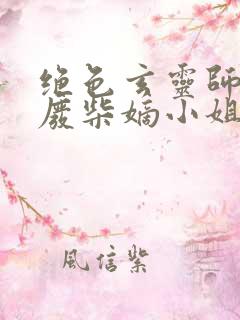 绝色玄靈師
廢柴嫡小姐
風信紫